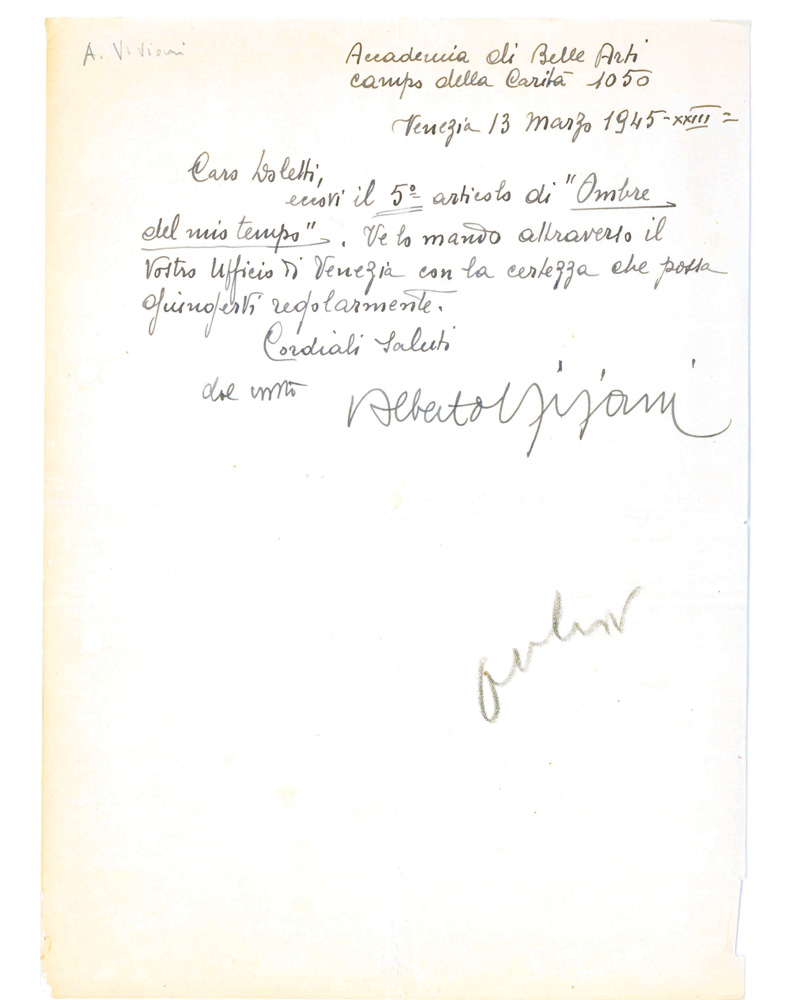 A. Viviani
Accademia di Belle Arti
campo della Carità 1050
Venezia 13 Marzo 1945-XXIII=
Caro Doletti,
eccovi il 5º articolo di "Ombre
del mio tempo". Ve lo mando attraverso il
Vostro Ufficio di Venezia con la certezza che possa
giungervi regolarmente.
Cordiali saluti
dal vostro
Alberto Viviani